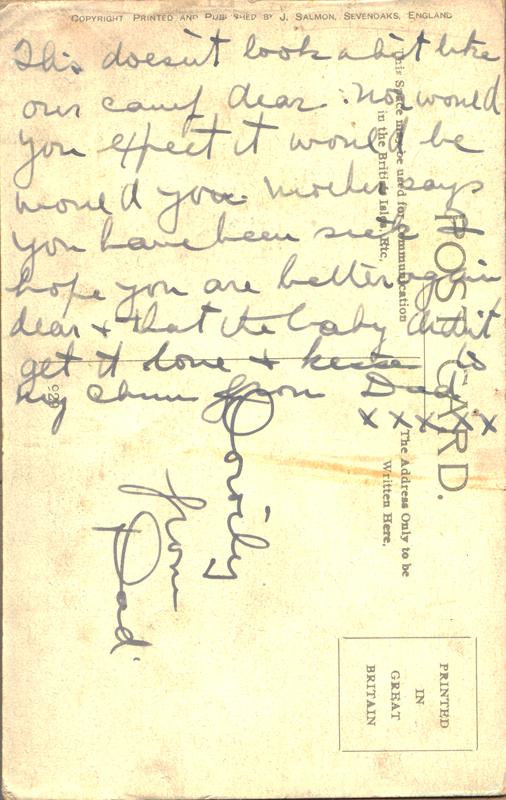 COPYRIGHT PRINTED AND PUBLISHED BY J. SALMON, SEVENOAKS, ENGLAND
This doesn't look a bit like
our camp dear. Nor would
you expect it would be
would you. Mother says
you have been sick I
hope you are better again
dear + that the baby didn't
get it love + kisses to
my chum from Dad
x x x x x
from
Dad.
POST CARD.
This Space may be used for Communication
in the British Isles, Etc.
The Address Only to be
Written Here.
PRINTED
IN
GREAT
BRITAIN